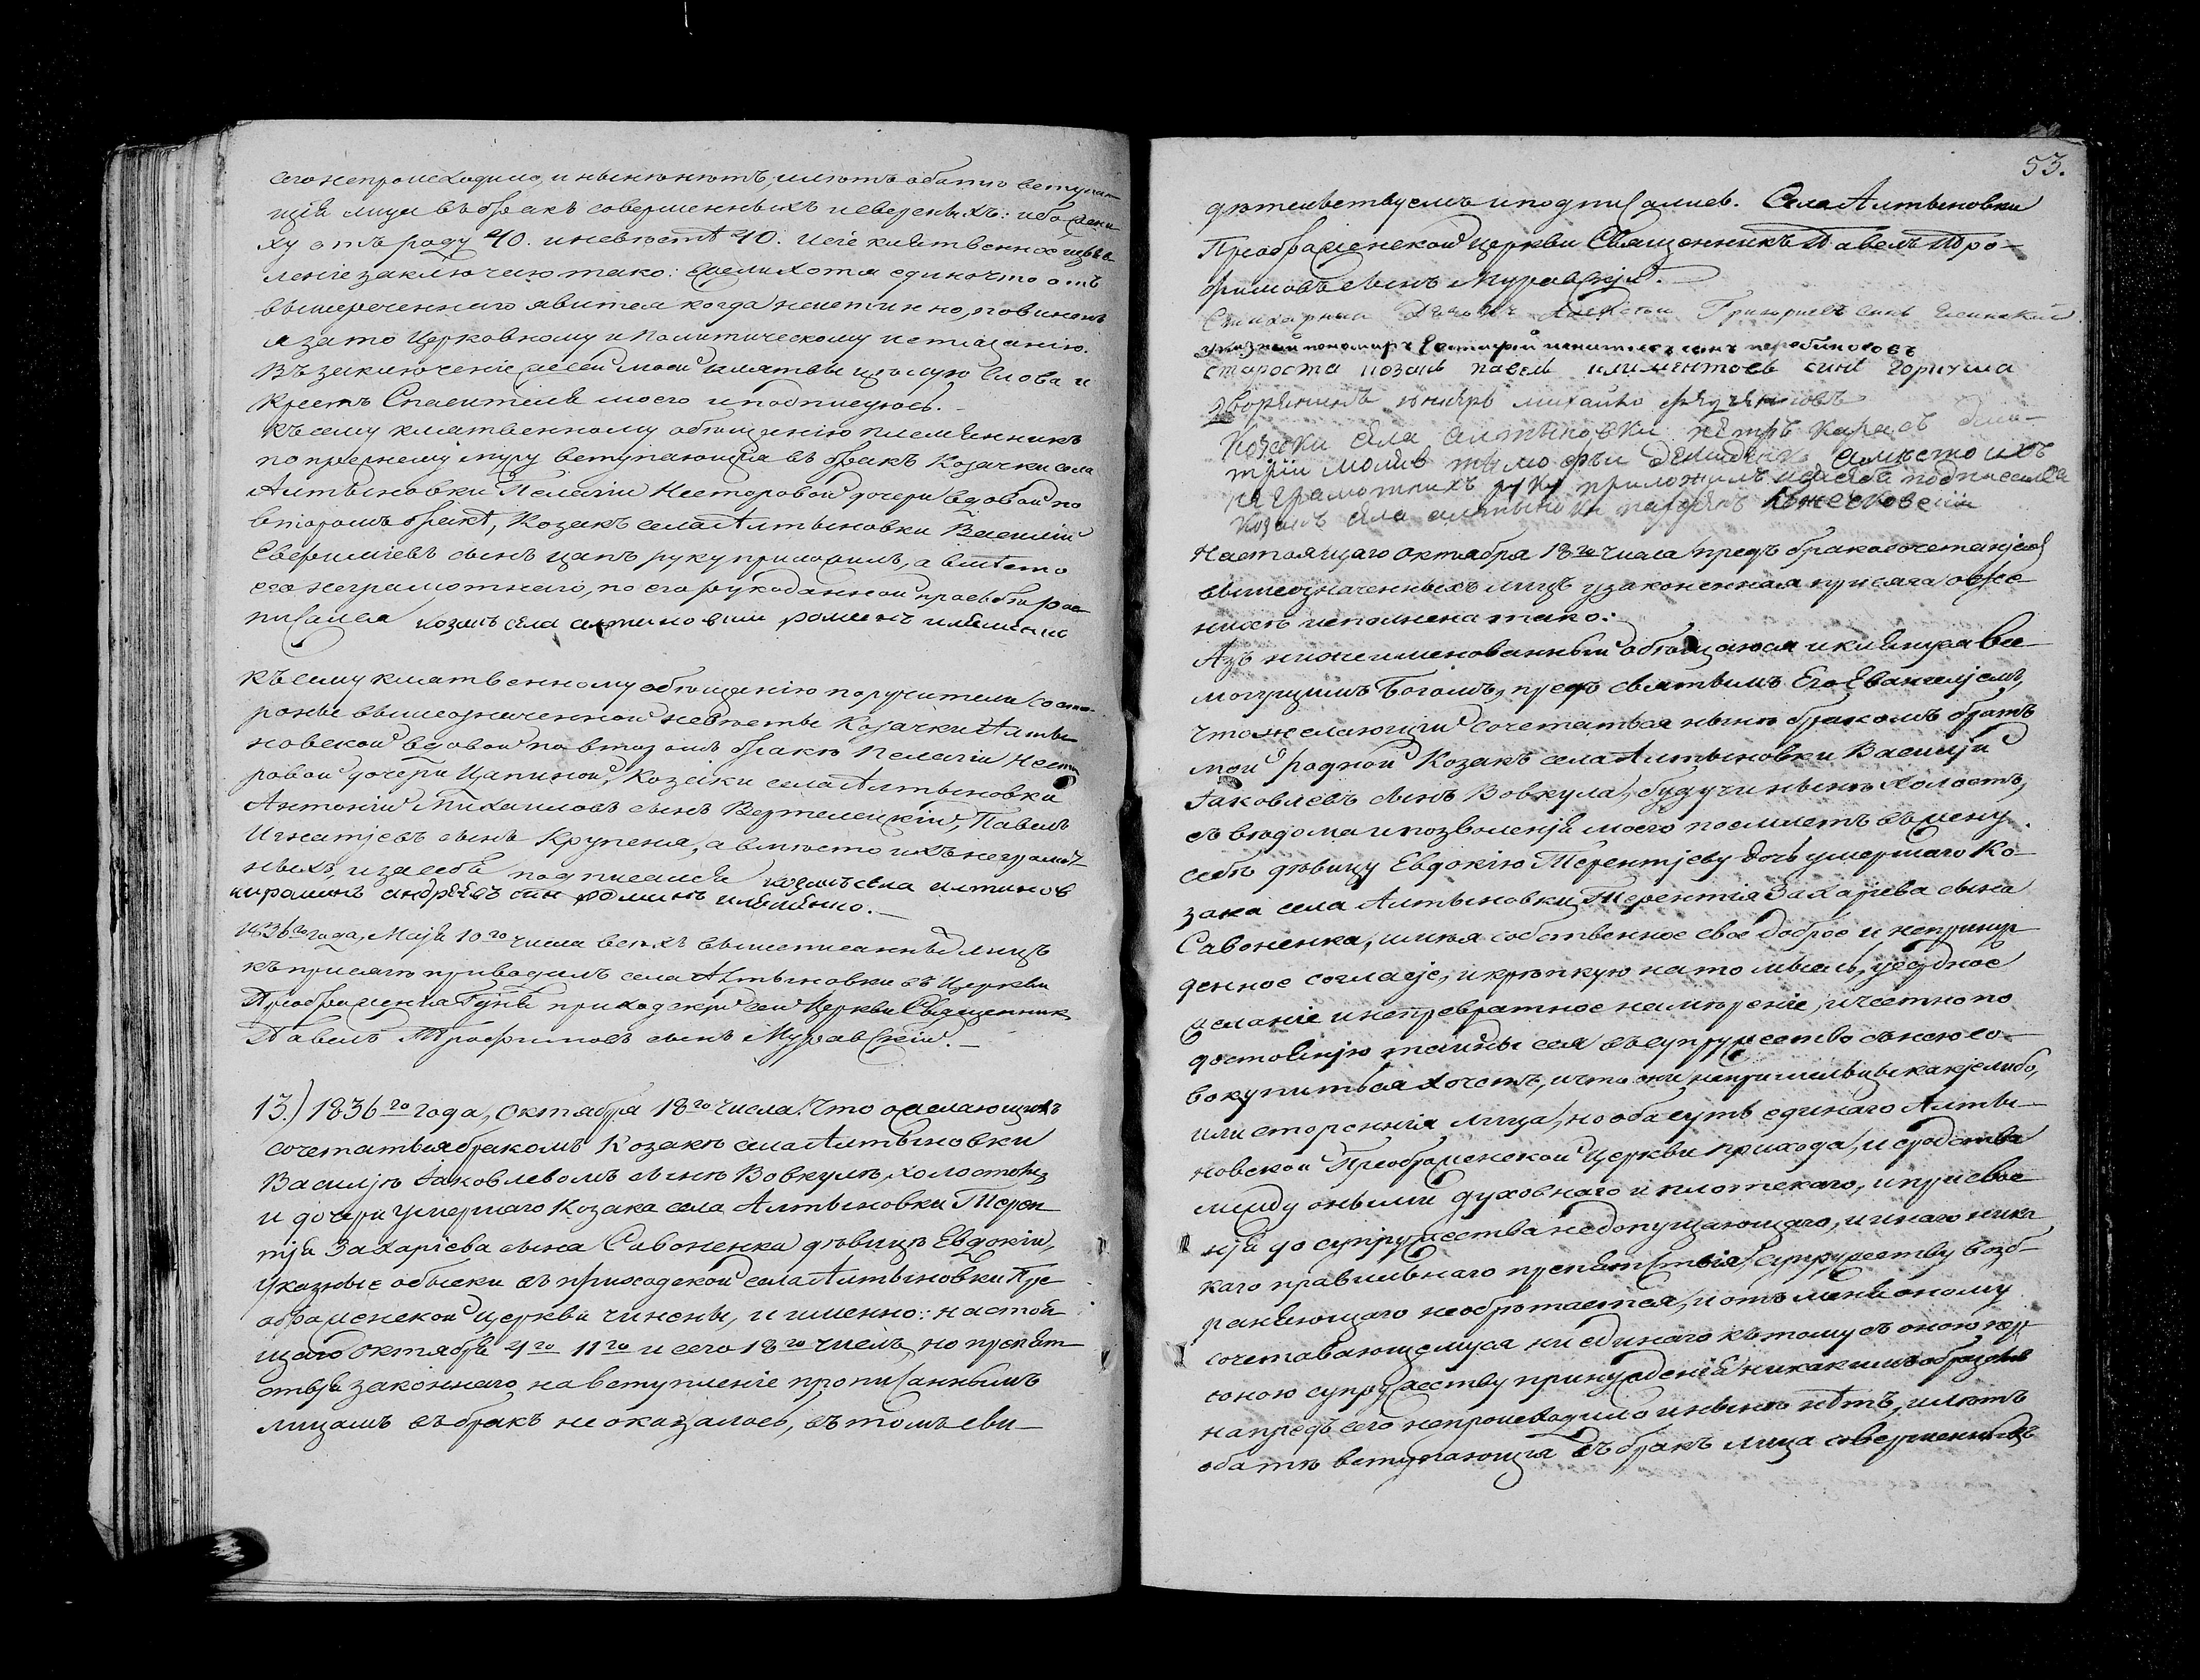 сего непроисходило, и нынѣ нѣтъ, имѣютъ обатѣ вступаю
щія лица въ бракъ совершенныхъ и сверсныхъ: ибо жени
ху отъ роду 40. и невѣстѣ 40. И сіе клятвенное изъяв
леніе заключаю тако: ежели хотя едино что отъ
вышереченнаго явится когда неистинно, повиненъ
я за то Церковному и Политическому истязанію.
Въ заключеніе же сей моей клятвы цѣлую Слова и
Крестъ Спасителя моего и подписуюсь.
Къ сему клятвенному обѣщанію племянникъ
по прежнему мужу вступающія въ бракъ Козачки села
Алтыновки Пелагіи Несторовой дочери вдовой по
второмъ бракѣ, Козакъ села Алтыновки Василій
Евфиміевъ сынъ Цапъ руку приложилъ, а вмѣсто
его неграмотнаго, по его рукоданной прозьбѣ рос
писался козакъ села алтиновки роминъ
Къ сему клятвенному обѣщанію поручители со сто
роны вышеозначенной невѣсты Козачки Алты
новской вдовой по второмъ бракѣ Пелагіи Несто
ровой дочери Цапиной, Козаки села Алтыновки
Антоній Михаиловъ сынъ Вертелецкій, Павелъ
Игнатіевъ сынъ Крупеня, а вмѣсто ихъ неграмот
ныхъ, и за себя подписался козакъ села алтинов
ки роминъ андрѣевъ син
1836го года, Маія 10го числа всѣхъ вышеписанныхъ лицъ
къ присягѣ приводилъ села Алтыновки въ Церкви
Преображенія Гднѧ приходскій сей Церкви Священникъ
Павелъ Трофимовъ сынъ Муравскій.
13.) 1836го года, Октября 18го числа. Что о желающихъ
сочетаться бракомъ Козакѣ села Алтыновки
Василію Іаковлевомъ сынѣ Вовкулѣ, холостомъ
и дочери умершаго Козака села Алтыновки Терен
тія Захаріева сына Савоненка дѣвицѣ Евдокіи,
указные обыски въ приходской села Алтыновки Пре
ображенской церкви чинены, и именно: настоя
щаго Октября 4го 11го и сего 18го числъ, но препят
ствія законнаго на вступленіе прописаннымъ
лицамъ въ бракъ не оказалось, въ томъ сви-
53.
дѣтельствуемъ и подписались. Села Алтыновки
Преображенской церкви Священникъ Павелъ Тро-
фимовъ сынъ Муравскій.
Стихарный Дячокъ Алексѣй Григориевъ синъ
указной пономарь
староста козакъ павелъ климентовъ синъ
дворянинъ юнкеръ михайло
Козаки села алтыновки петръ
трій тимофѣй вмѣсто ихъ
неграмотнихъ руку приложилъ и за себя подписался
козакъ села алтыновки
Настоящаго октября 18го числа предъ бракосочетаніемъ
вышеозначенныхъ лицъ узаконенная присяга о же
нихѣ исполнена тако:
Азъ нижеименованный обѣщаюся и клянуся Все
могущимъ Богомъ, предъ святымъ Его Евангеліемъ,
что желающій сочетаться нынѣ бракомъ братъ
мой родной Козакъ села Алтыновки Василій
Іаковлевъ сынъ Вовкула, будучи нынѣ холостъ,
съ вѣдома и позволенія моего поемлетъ въ жену
себѣ дѣвицу Евдокію Терентіеву дочь умершаго Ко-
зака села Алтыновки Терентія Захаріева сына
Савоненка, имѣя собственное свое доброе и непринуж
денное согласіе, и крѣпкую на то мысль, усердное
желаніе и непревратное намѣреніе, и честно по
достоинію тайны сея въ супружество съ нею со-
вокупиться хочетъ, и что они непришельцы какіе либо,
или сторонніи лица, но оба суть единаго Алты-
новской Преображенской Церкви прихода, и сродства
между оными духовнаго и плотскаго, и присвое
нія до супружества недопущающаго, и инаго ника
каго правильнаго препятствія супружеству возб-
раняющаго необрѣтается, и отъ меня оному
сочетавающемуся ни единаго къ тому съ оною пер
соною супружеству принужденія никакимъ образомъ
напредъ сего непроисходило и нынѣ нѣтъ, имѣютъ
обатѣ вступающія въ бракъ лица совершенныхъ